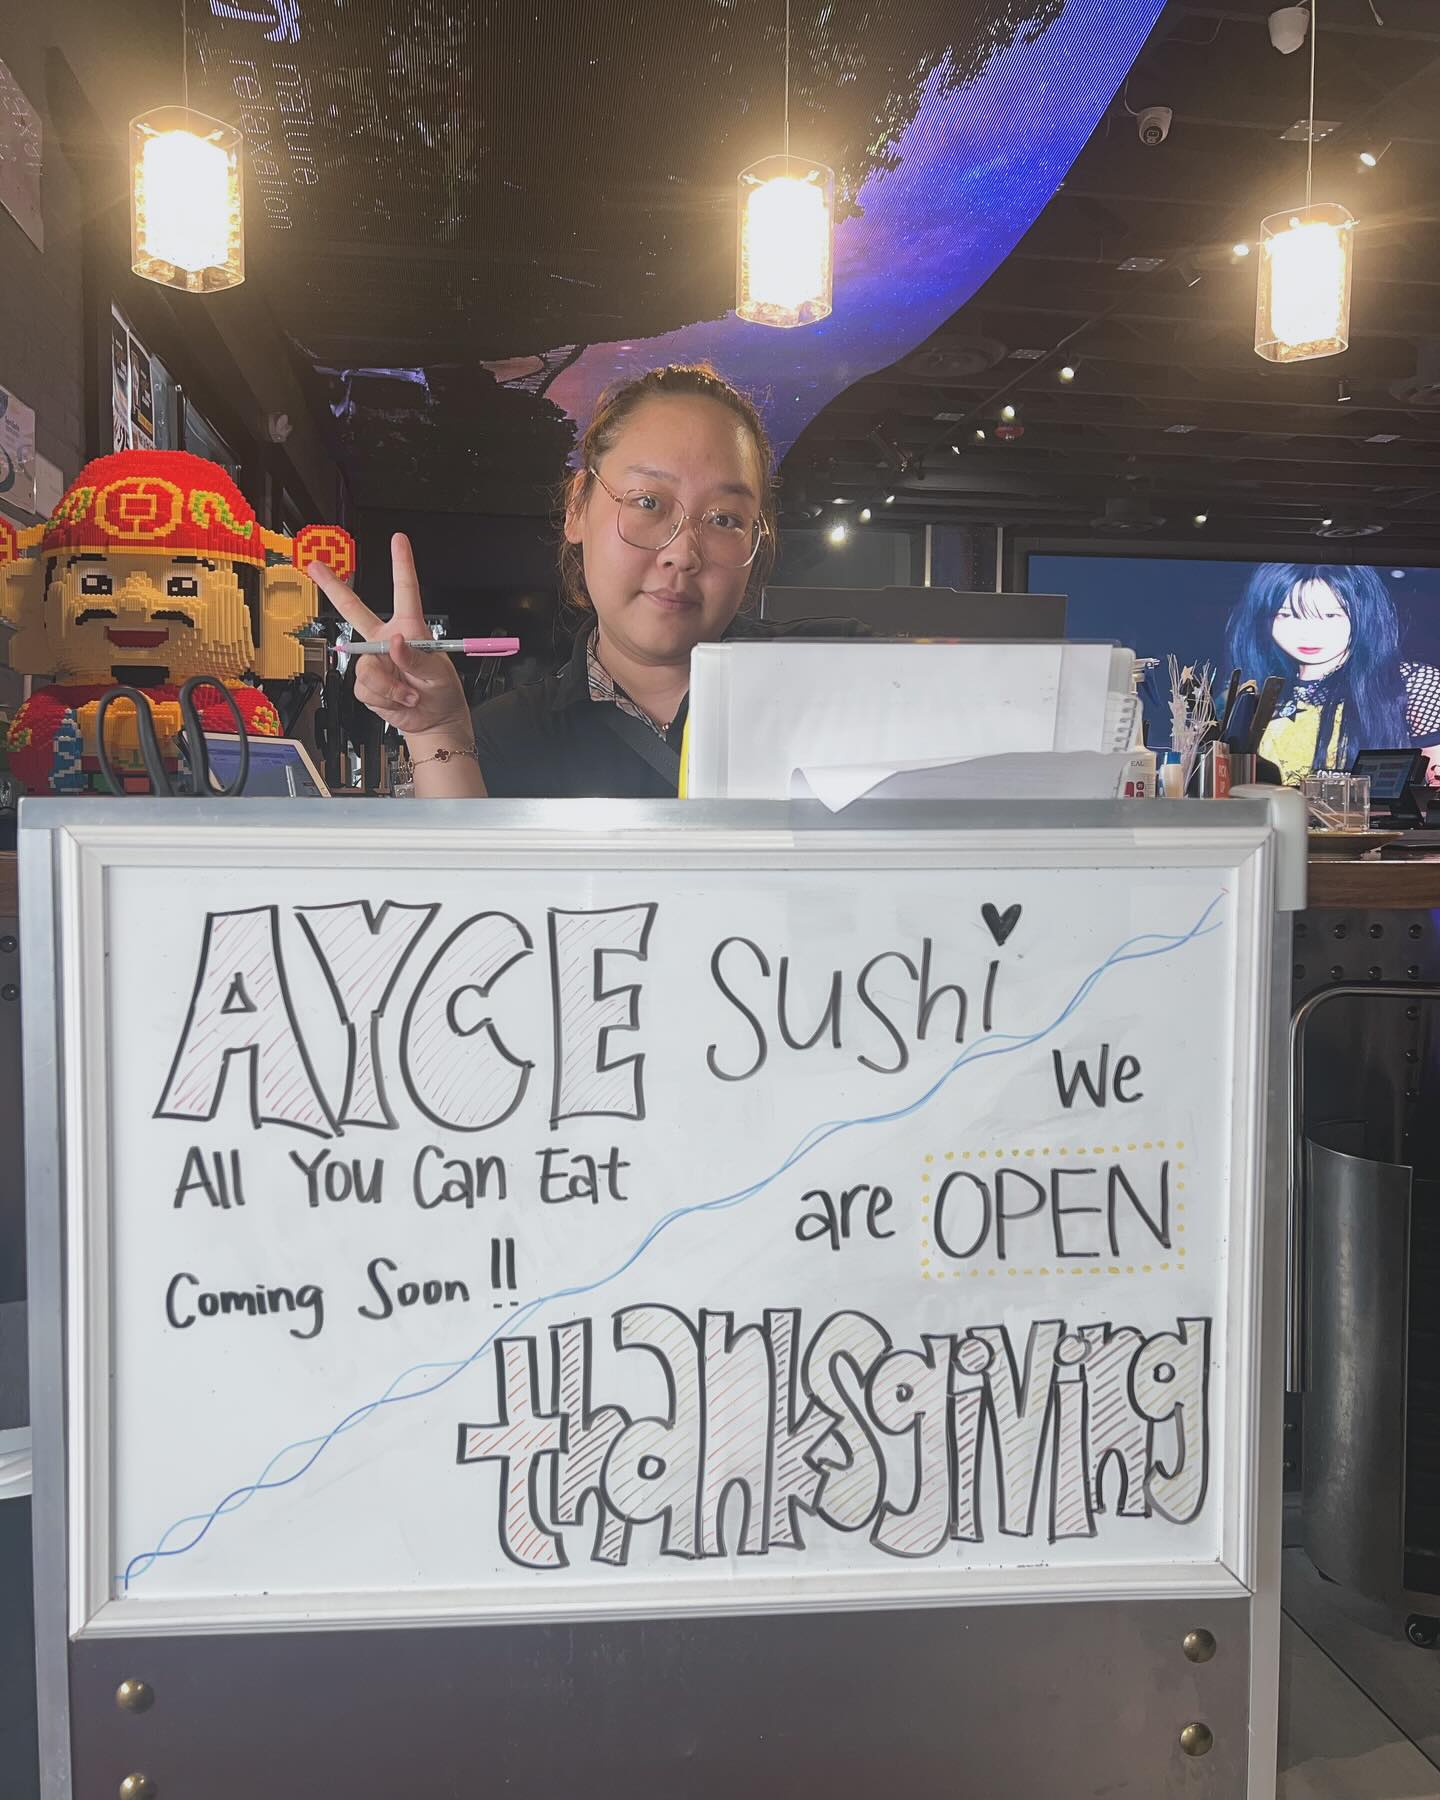 nature
relaxation
AYCE sushi
All You Can Eat
Coming Soon!!
We
are OPEN
thanksgiving